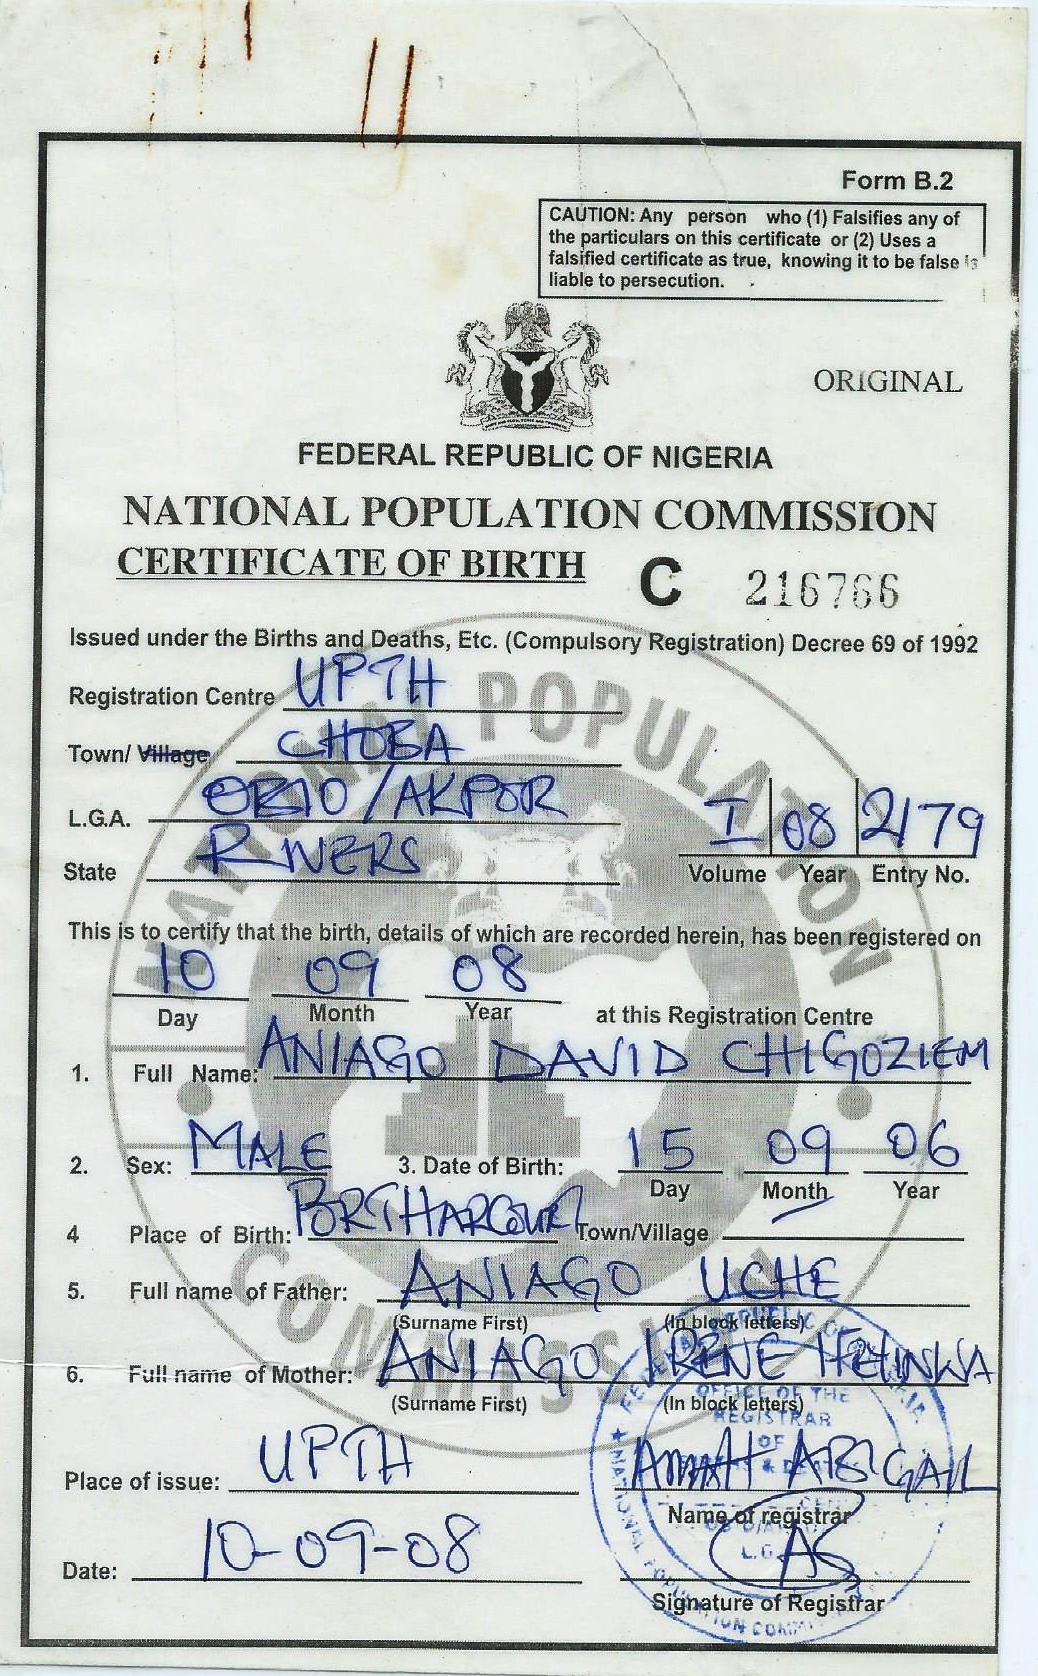 Form B.2
CAUTION: Any person who (1) Falsifies any of
the particulars on this certificate or (2) Uses a
falsified certificate as true, knowing it to be false is
liable to persecution.
ORIGINAL
FEDERAL REPUBLIC OF NIGERIA
NATIONAL POPULATION COMMISSION
CERTIFICATE OF BIRTH C 216766
Issued under the Births and Deaths, Etc. (Compulsory Registration) Decree 69 of 1992
Registration Centre UPTH
Town/ Village CHOBA
L.G.A. OBIO/AKPOR
State RIVERS
I 08 2179
Volume Year Entry No.
This is to certify that the birth, details of which are recorded herein, has been registered on
10 09 08
Day Month Year at this Registration Centre
1. Full Name: ANIAGO DAVID CHIGOZIEM
2. Sex: MALE 3. Date of Birth: 15 09 06
Day Month Year
4 Place of Birth: PORTHARCOURT Town/Village
5. Full name of Father: ANIAGO UCHE
(Surname First) (In block letters)
6. Full name of Mother: ANIAGO IRENE
(Surname First) (In block letters)
Place of issue: UPTH
ABIGAIL
Name of registrar
Date: 10-09-08
Signature of Registrar
NATIONAL POPULATION COMMISSION
OFFICE OF THE
REGISTRAR
OF
L.G.A